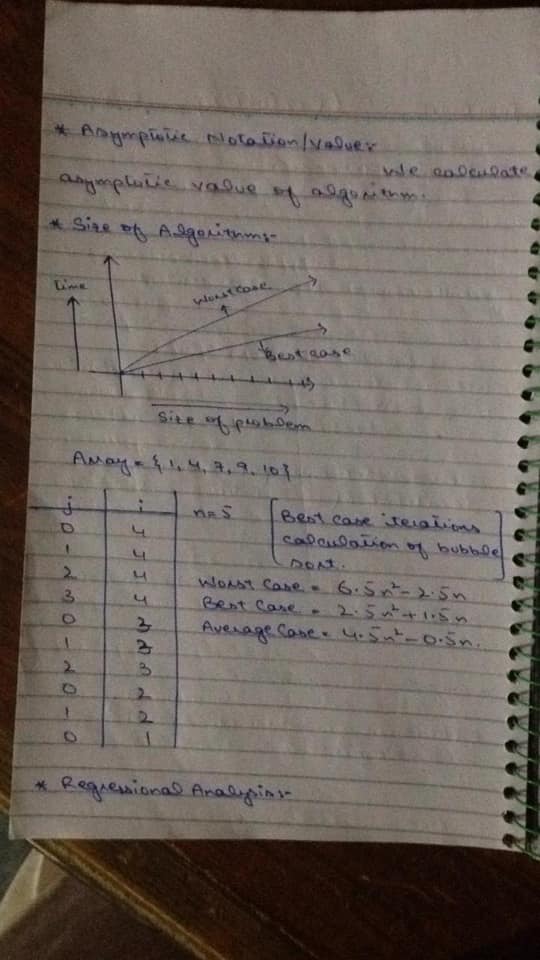 * Asymptotic Notation/Values
We calculate
asymptotic value of algorithm.
* Size of Algorithms:-
Time
Worst case
Best case
Size of problem
Array = {1, 4, 7, 9, 10}
j i n=5 [Best case iterations
0 4 calculation of bubble
1 4 sort.]
2 4 Worst Case = 6.5n²-2.5n
3 4 Best Case = 2.5n²+1.5n
0 3 Average Case = 4.5n²-0.5n.
1 3
2 3
0 2
1 2
0 1
* Regressional Analysis:-